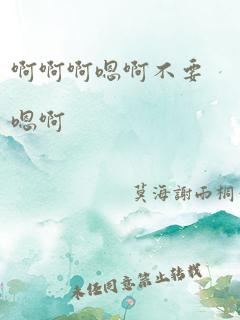 啊啊啊嗯啊不要
嗯啊
莫海謝雨桐
未经同意禁止转载